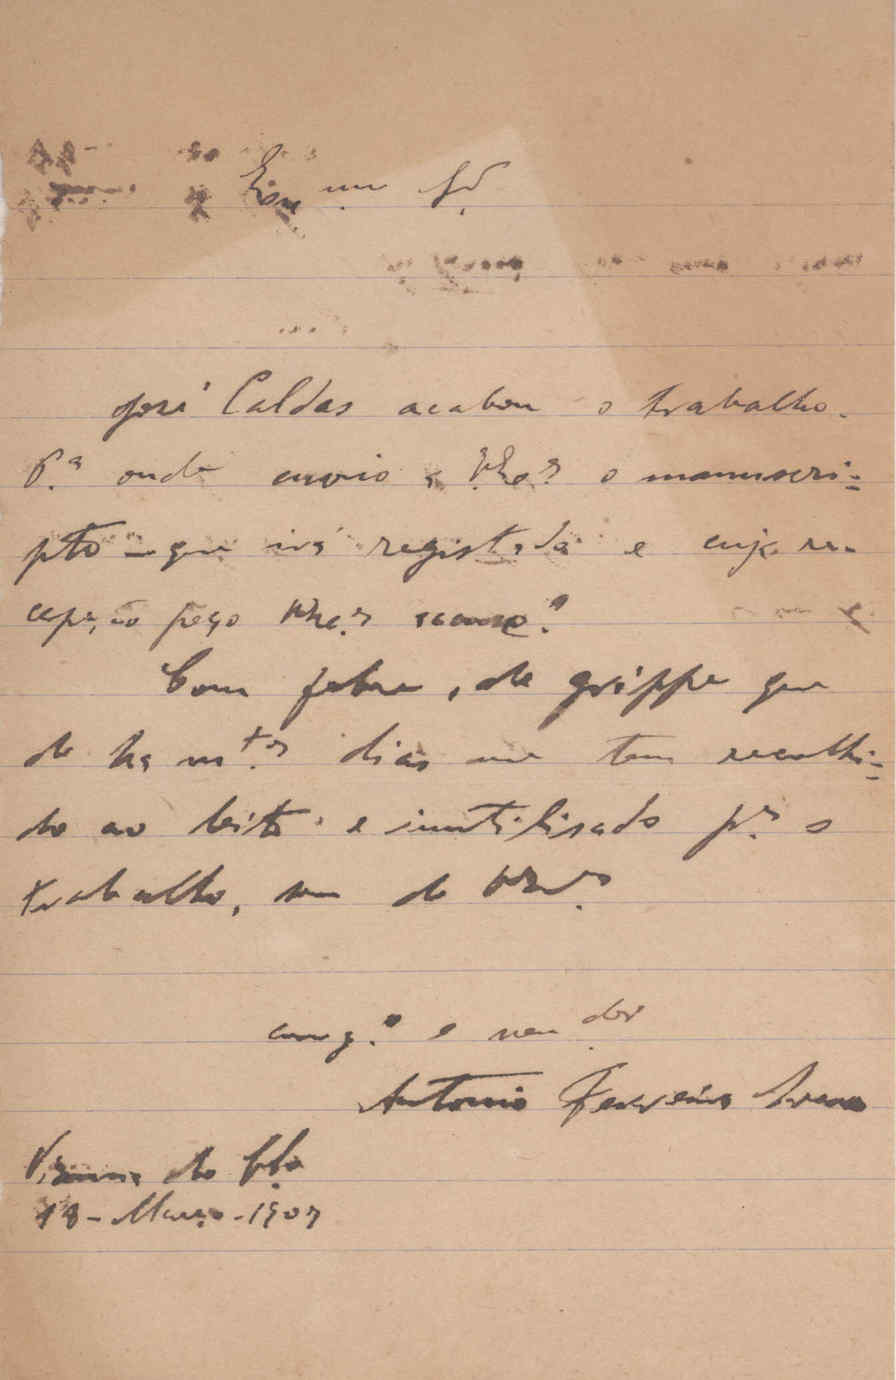 Exmo Sr.
José Caldas acabou o trabalho.
P.ª onde envio a V.Ex.ª o manuscri-
pto - que irá registado e cuja re-
cepção peço
Com febre, de grippe que
de ha m.tos dias me tem recolhi-
do ao leito e inutilisado p.ª o
trabalho, sou de V.Ex.ª
am.g.º e ven.dor
Antonio Ferreira
Vianna do C.lo
18 - Março - 1907